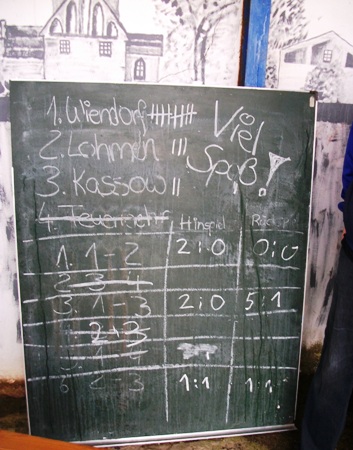 1. Uliendorf
2. Lohmen III
3. Kassow II
4. Teuerlicht
Viel
Spaß!
Hinspiel
1. 1-2 2:0 0:0
2 3-4
3. 1-3 2:0 5:1
2-3
6 2-3 1:1 1:1